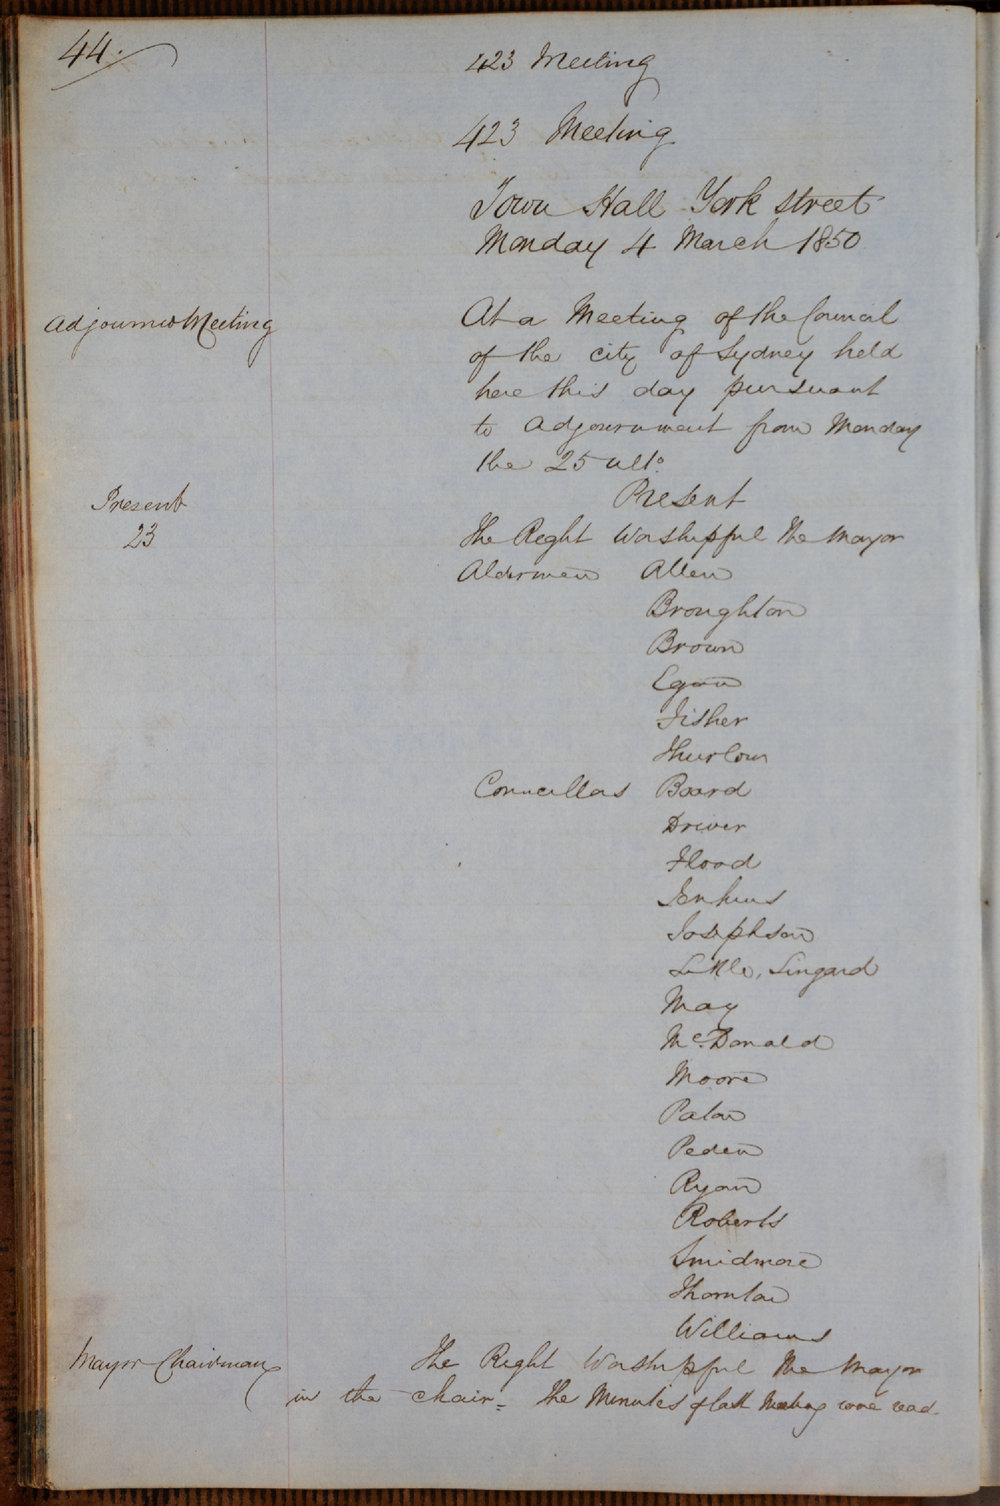 44.
423 Meeting
423 Meeting
Town Hall York street
Monday 4 March 1850
Adjourned Meeting
At a Meeting of the Council
of the city of Sydney held
here this day pursuant
to adjournment from Monday
the 25 ulto.
Present
23
Present
The Right Worshipful the Mayor
Aldermen Allen
Broughton
Brown
Egan
Fisher
Thurlow
Councillors Board
Driver
Flood
Jenkins
Josephson
Little, Lingard
May
McDonald
Moore
Paton
Peden
Ryan
Roberts
Smidmore
Thornton
Williams
Mayor Chairman
The Right Worshipful the Mayor
in the chair = The Minutes of last Meeting were read.